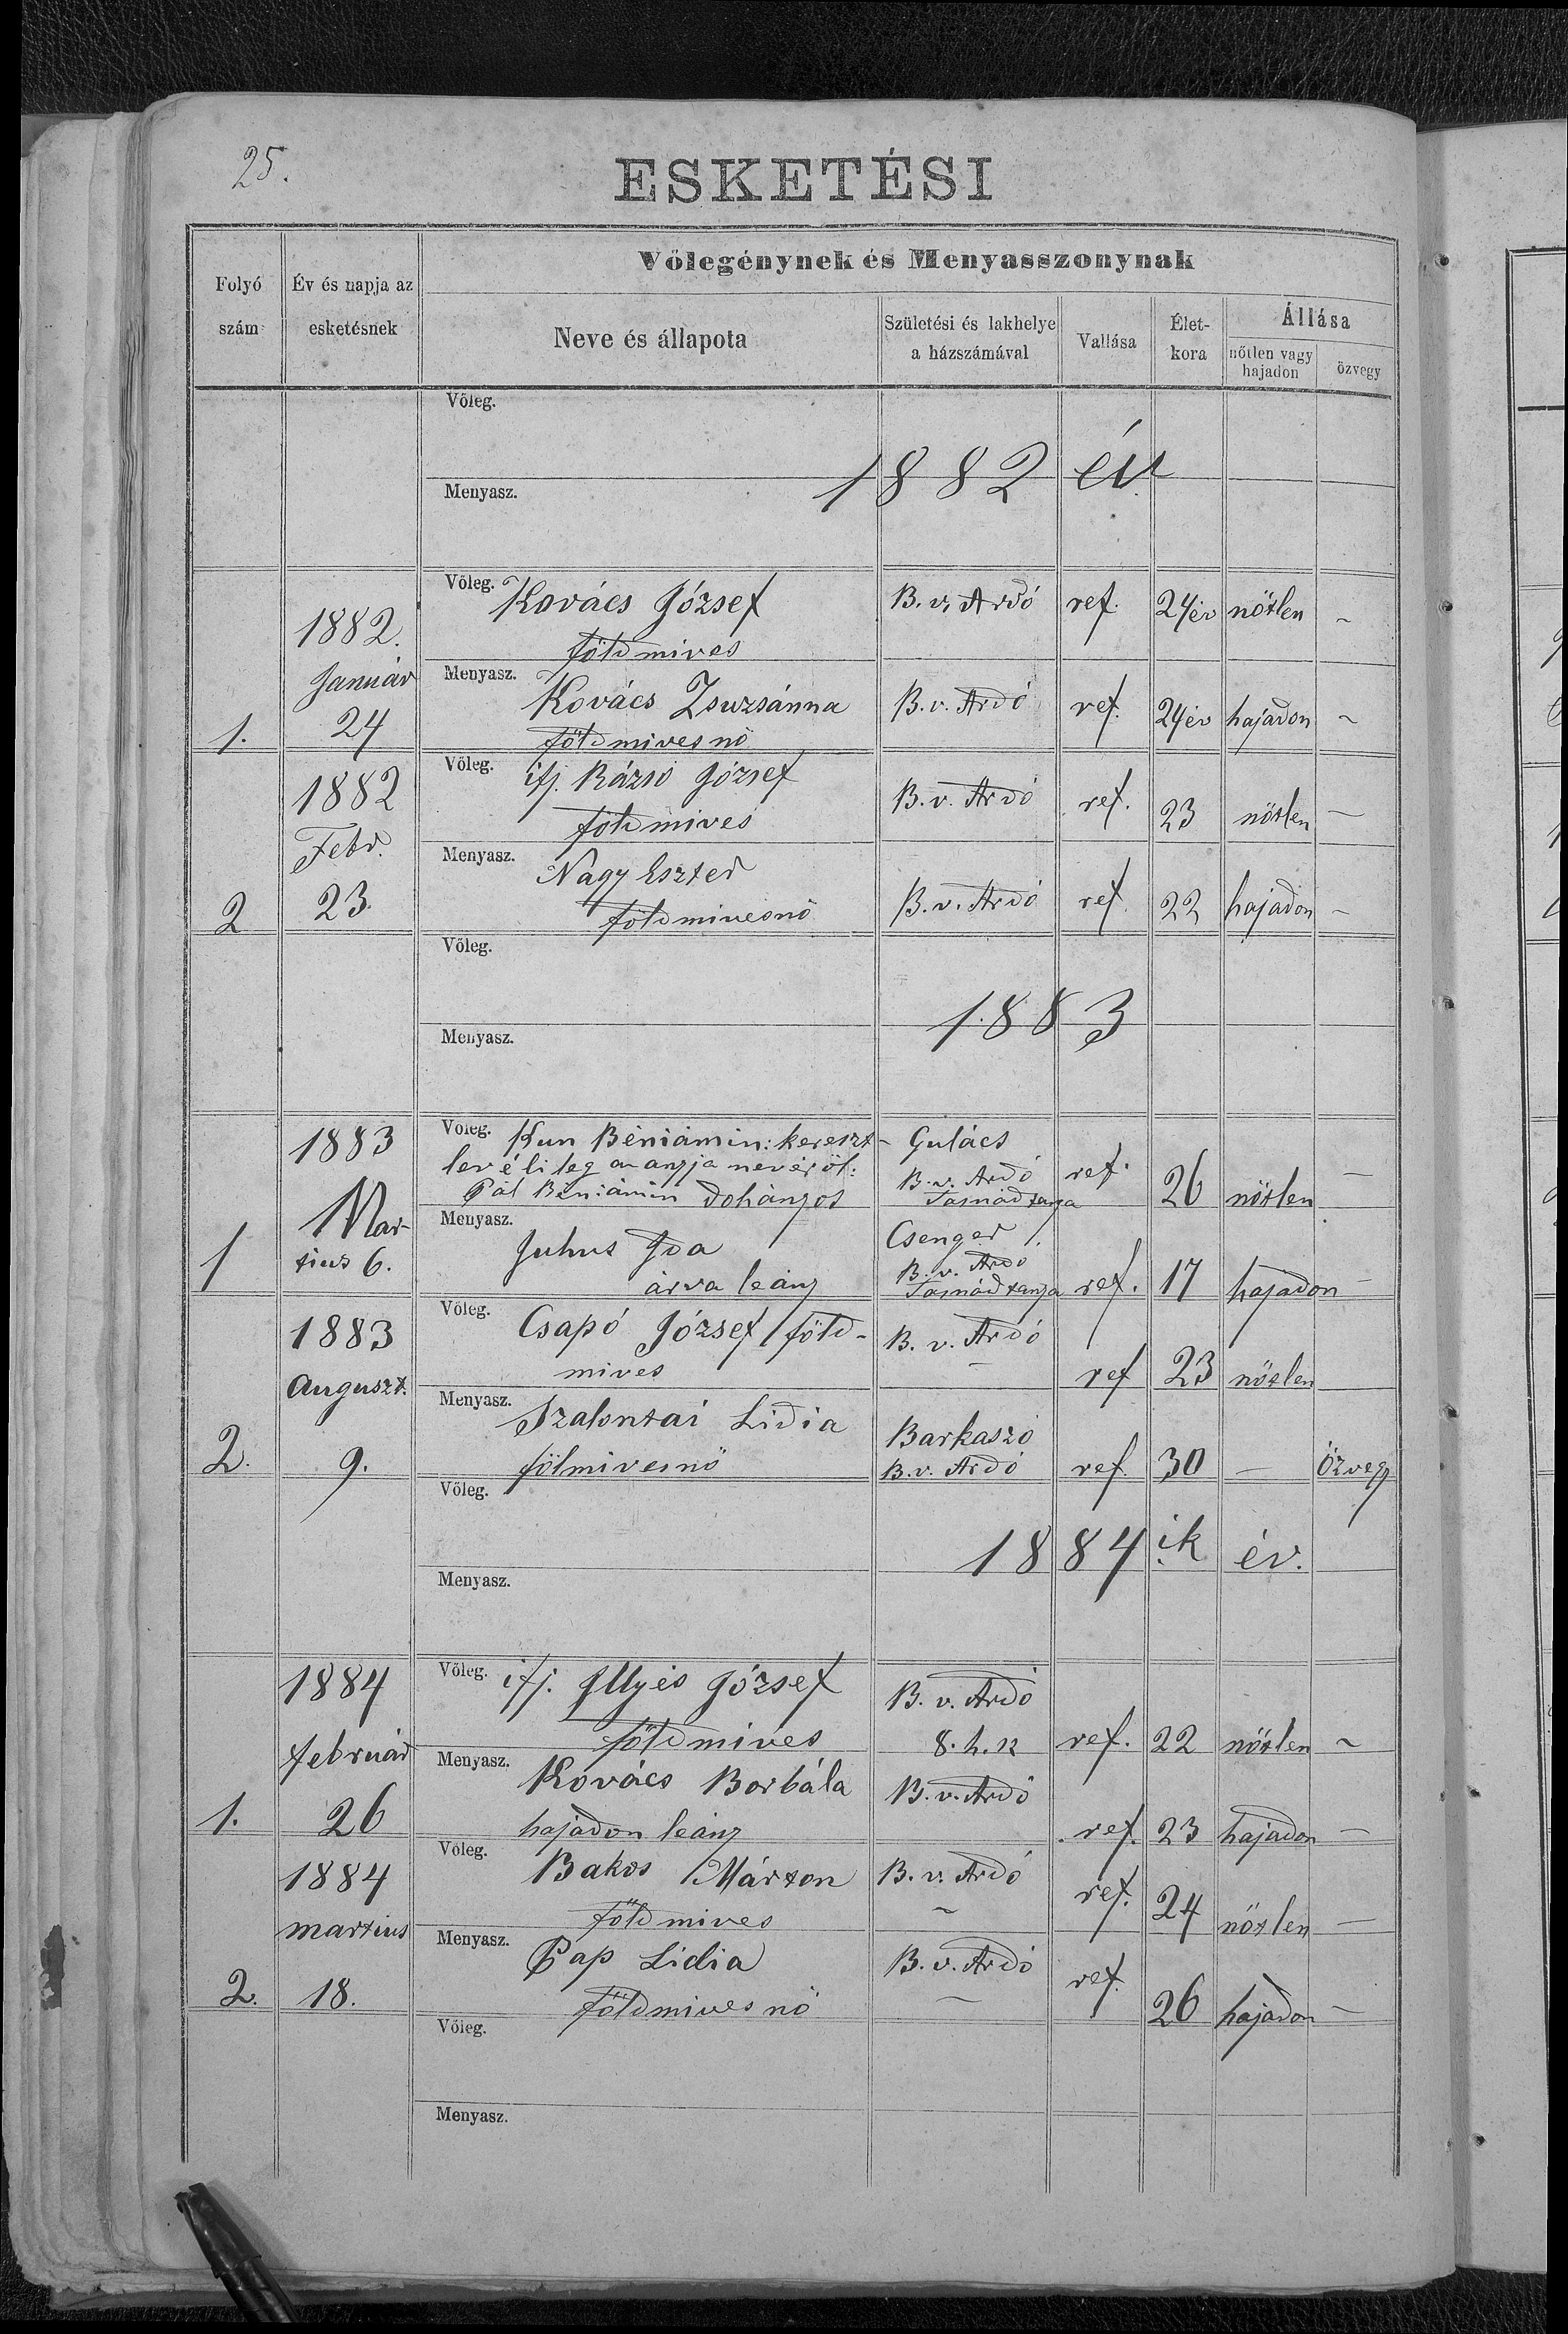 25.
ESKETÉSI
Folyó szám
Év és napja az esketésnek
Vőlegénynek és Menyasszonynak
Neve és állapota
Születési és lakhelye a házszámával
Vallása
Élet-kora
Állása
nőtlen vagy hajadon
özvegy
Vőleg.
1882 év
Menyasz.
Vőleg. Kovács József B. v. Ardó ref. 24 év nőtlen ~
1882.
földmives
Január
Menyasz. Kovács Zsuzsánna B. v. Ardó ref. 24 év hajadon ~
1. 24
földmives nő
Vőleg. ifj. Rázsó József B. v. Ardó ref. 23 nőtlen —
1882
földmives
Febr.
Menyasz. Nagy Eszter B. v. Ardó ref. 22 hajadon —
2 23.
földmivesnő
Vőleg.
1883
Menyasz.
1883
Vőleg. Kun Béniámin: kereszt- Gulács
levélileg az anyja nevéről: B. v. Ardó ref. 26 nőtlen —
Pál Béniámin dohányos Tasnádtanya
Mar-
Menyasz. Juhus Ida Csenger
1 tius 6.
árva leány B. v. Ardó Tasnádtanya ref. 17 hajadon —
Vőleg. Csapó József föld- B. v. Ardó
1883
mives — ref 23 nőtlen
Auguszt.
Menyasz. Szalontai Lidia Barkaszó
2. 9.
fölmivesnő B. v. Ardó ref 30 — Özvegy
Vőleg.
1884 ik év.
Menyasz.
1884
Vőleg. ifj. Illyés József B. v. Ardó
földmives 8. h. sz ref. 22 nőtlen ~
február
Menyasz. Kovács Borbála B. v. Ardó
1. 26
hajadon leány ref. 23 hajadon —
Vőleg. Bakos Márton B. v. Ardó
1884
földmives ~ ref. 24 nőtlen —
martius
Menyasz. Pap Lidia B. v. Ardó ref.
2. 18.
földmives nő — 26 hajadon —
Vőleg.
Menyasz.